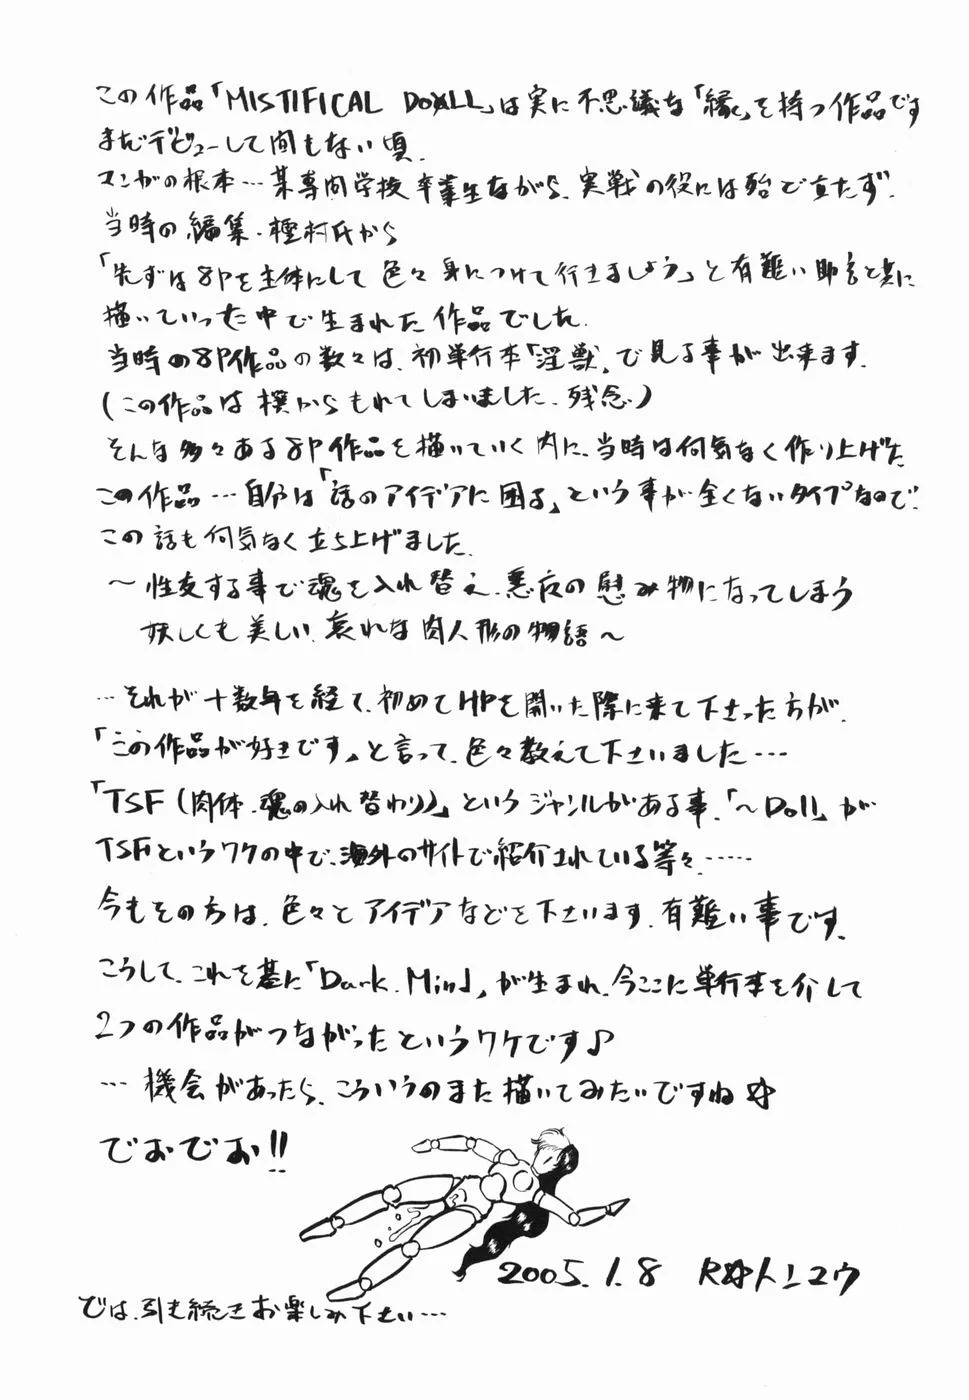 この作品「MISTIFICAL DOLL」は実に不思議な「縁」を持つ作品です
まだデビューして間もない頃、
マンガの根本…某専門学校卒業生ながら、実戦の役には殆で立たず、
当時の編集・種村氏から
「先ずは8Pを主体にして色々身につけて行きましょう」と有難い助言と共に
描いていった中で生まれた作品でした。
当時の8P作品の数々は、初単行本「淫獣」で見る事が出来ます。
(この作品は撰からもれてしまいました、残念)
そんな多々ある8P作品を描いていく内に、当時は何気なく作り上げた
この作品…自分は「話のアイデアに困る」という事が全くないタイプなので、
この話も何気なく立ち上げました。
～性交する事で魂を入れ替え、悪友の慰み物になってしまう
妖しくも美しい、哀れな肉人形の物語～
…それが十数年を経て、初めてHPを開いた際に来て下さった方が、
「この作品が好きです」と言って、色々教えて下さいました…
「TSF(肉体・魂の入れ替わり)」というジャンルがある事、「～Doll」が
TSFというワケの中で、海外のサイトで紹介されている等々……
今もその方は、色々とアイデアなどを下さいます。有難い事です。
こうして、これを基に「Dark Mind」が生まれ、今ここに単行本を介して
2つの作品がつながったというワケです♪
…機会があったら、こういうのまた描いてみたいですね☆
でおでお!!
2005.1.8
では、引き続きお楽しみ下さい…